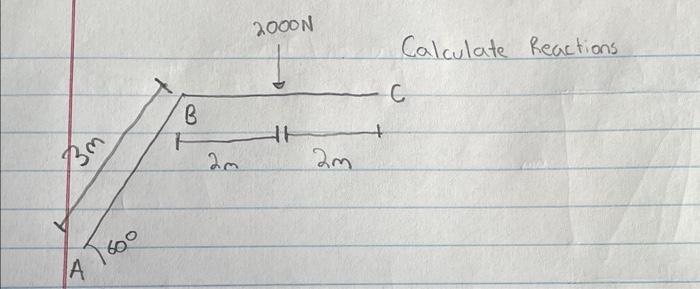 2000N
Calculate Reactions
C
B
3m
2m
2m
60°
A